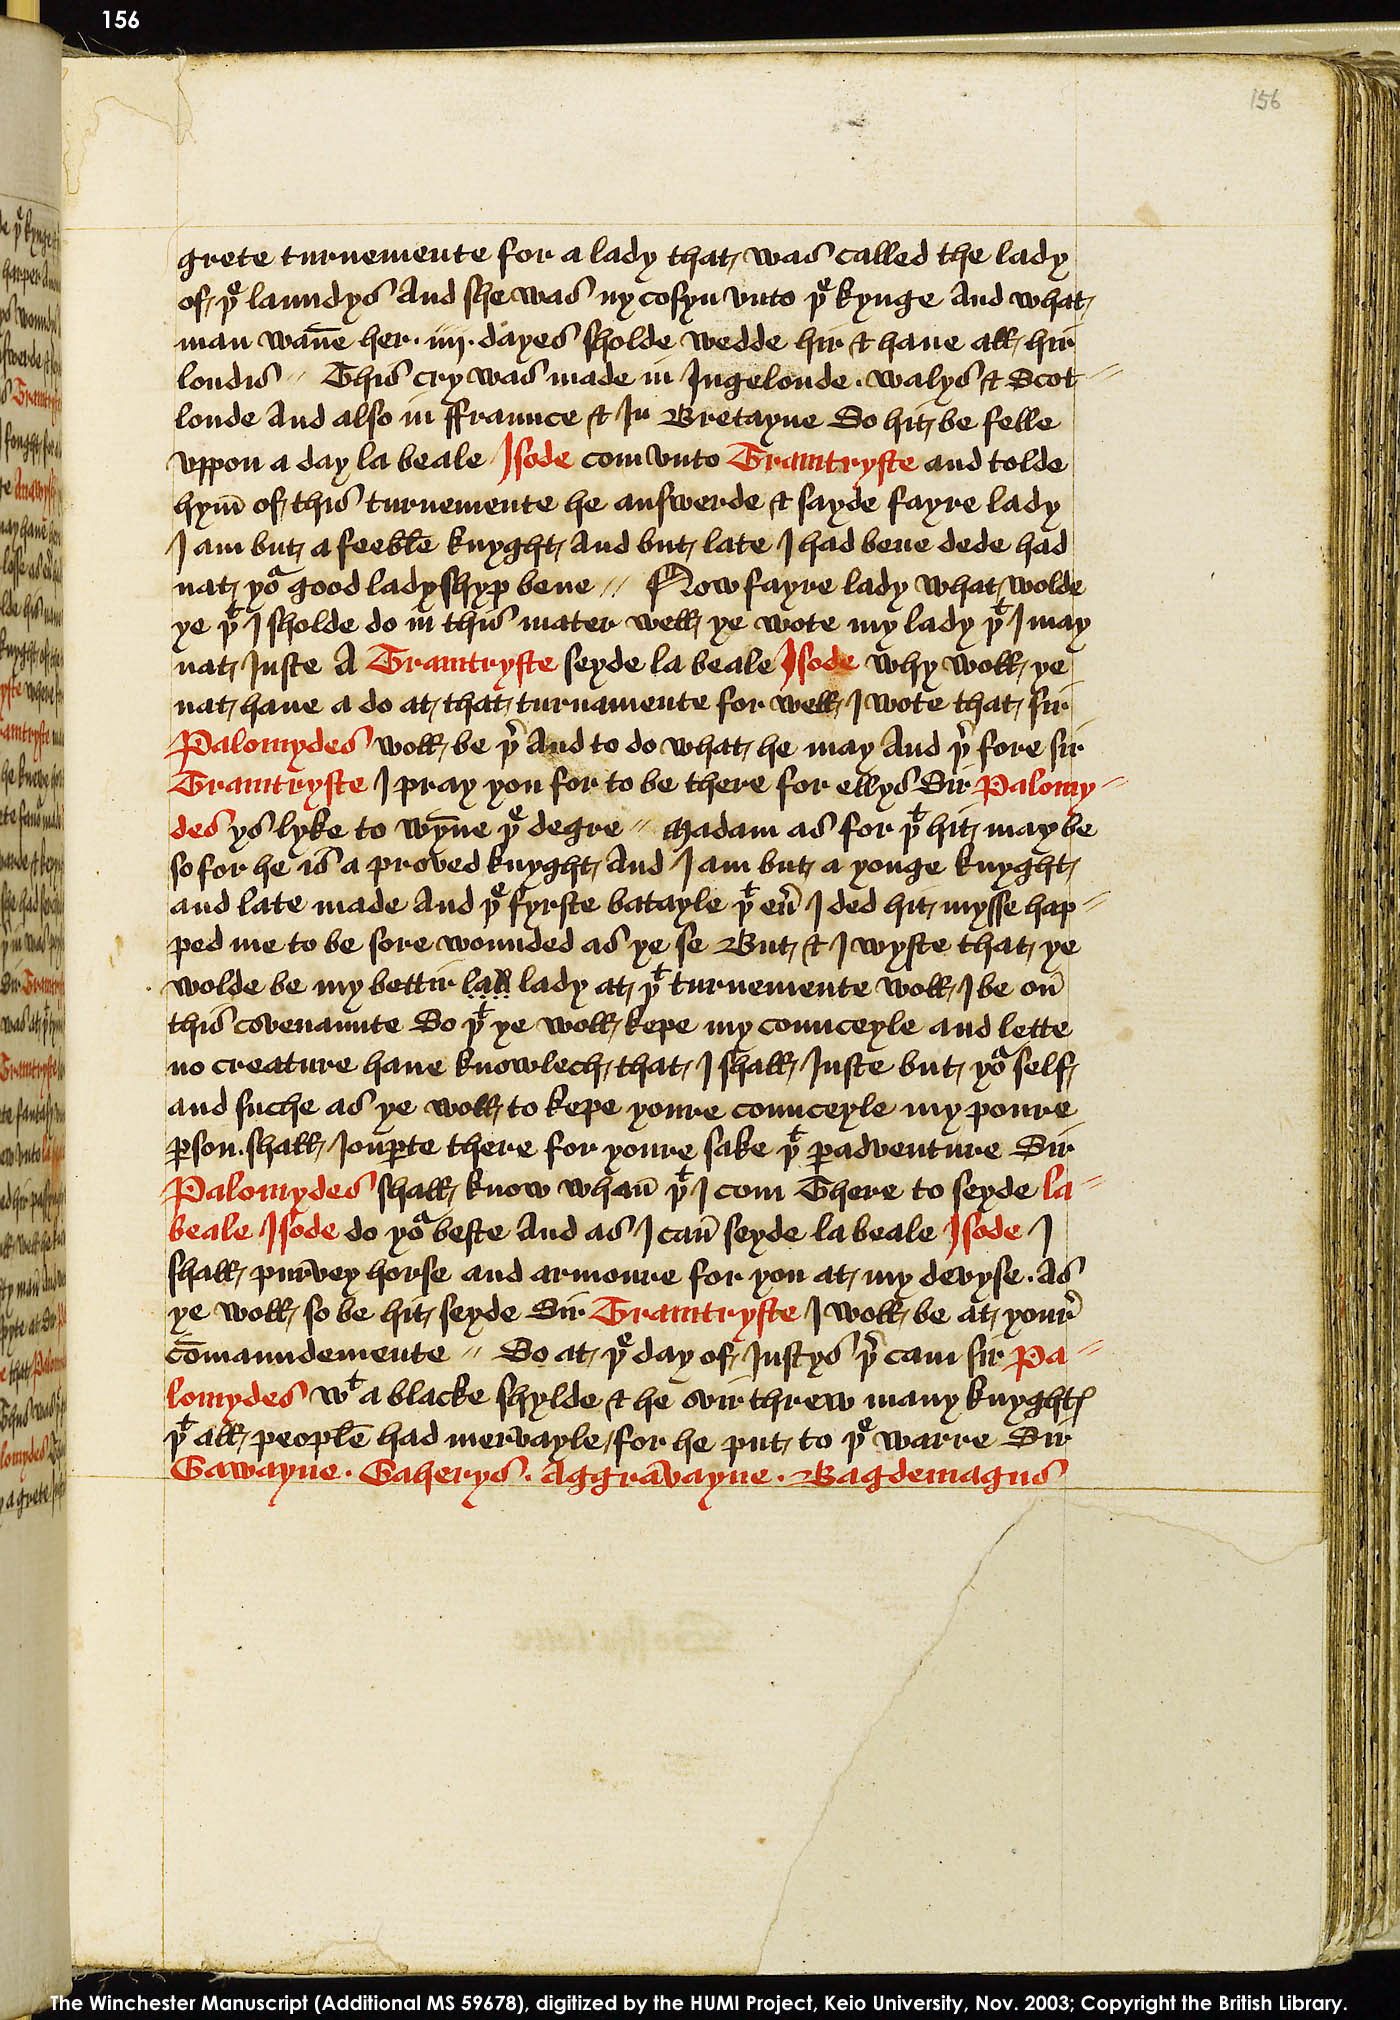 156
156
grete turnemente for a lady that was called the lady
of þe laundys And she was ny cosyn vnto þe kynge And what
man wan̄e her · iiij · dayes sholde wedde hir & haue all hir
londis // This cry was made in Ingelonde · walys & Scot //
londe And also in ffraunce & In Bretayne So hit be felle
vppon a day la beale Isode com vnto Tramtryste and tolde
hym̄ of this turnemente he answerde & sayde fayre lady
I am but a feeble knyght And but late I had bene dede had
nat yoᵃ good ladyshyp bene // Now fayre lady what wolde
ye þt I sholde do in this mater well ye wote my lady þt I may
nat Iuste A Tramtryste seyde la beale Isode why woll ye
nat haue a do at that turnamente for well I wote that sir
Palomydes woll be þr And to do what he may And þr fore sir
Tramtryste I pray you for to be there for ellys Sir Palomy //
des ys lyke to wyn̄e þe degre // Madam as for þt hit may be
so for he is a proved knyght And I am but a yonge knyght
and late made And þe fyrste batayle þt eū I ded hit mysse hap //
ped me to be sore wounded as ye se But & I wyste that ye
wolde be my bettir lad lady at þt turnemente woll I be on̄
this covenaunte So þt ye woll kepe my counceyle and lette
no creature haue knowlech that I shall Iuste but yoᵃ self
and suche as ye woll to kepe youre counceyle my poure
ꝑson · shall Iouꝑte there for youre sake þt ꝑadventure Sir
Palomydes shall know whan̄ þt I com There to seyde la //
beale Isode do yoᵃ beste And as I can̄ seyde la beale Isode I
shall purvey horse and armoure for you at my devyse · As
ye woll so be hit seyde Sir Tramtryste I woll be at your̄
com̄aundemente // So at þe day of Iustys þr cam sir Pa //
lomydes wt a blacke shylde & he ovir threw many knyghtꝭ
þt all people had mervayle / for he put to þe warre Sir
Gawayne · Gaherys · Aggravayne · Bagdemagus
The Winchester Manuscript (Additional MS 59678), digitized by the HUMI Project, Keio University, Nov. 2003; Copyright the British Library.